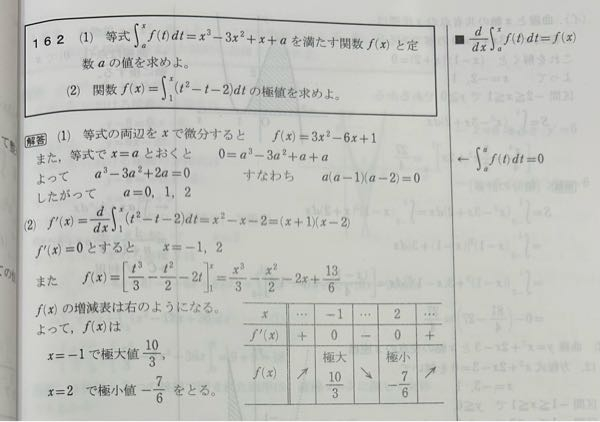 162 (1) 等式∫_a^x f(t)dt=x³−3x²+x+a を満たす関数 f(x) と定
数 a の値を求めよ。
(2) 関数 f(x)=∫_1^x (t²−t−2)dt の極値を求めよ。
■ d/dx ∫_a^x f(t)dt=f(x)
解答 (1) 等式の両辺を x で微分すると f(x)=3x²−6x+1
また，等式で x=a とおくと 0=a³−3a²+a+a
← ∫_a^a f(t)dt=0
よって a³−3a²+2a=0 すなわち a(a−1)(a−2)=0
したがって a=0, 1, 2
(2) f′(x)=d/dx ∫_1^x (t²−t−2)dt=x²−x−2=(x+1)(x−2)
f′(x)=0 とすると x=−1, 2
また f(x)=[t³/3−t²/2−2t]_1^x=x³/3−x²/2−2x+13/6
f(x) の増減表は右のようになる。
よって，f(x) は
x=−1 で極大値 10/3，
x=2 で極小値 −7/6 をとる。
x … −1 … 2 …
f′(x) + 0 − 0 +
f(x) ↗ 極大 10/3 ↘ 極小 −7/6 ↗